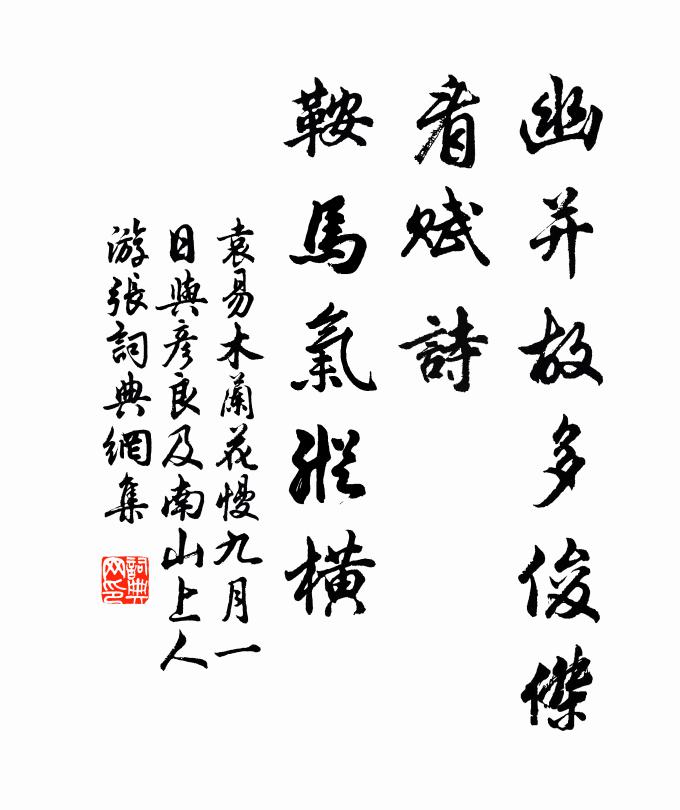 幽并故多俊傑
看賦詩
鞍馬氣縱橫
袁易木蘭花慢九月一
日與彥良及南山上人
游張詞典網集
詞典网印